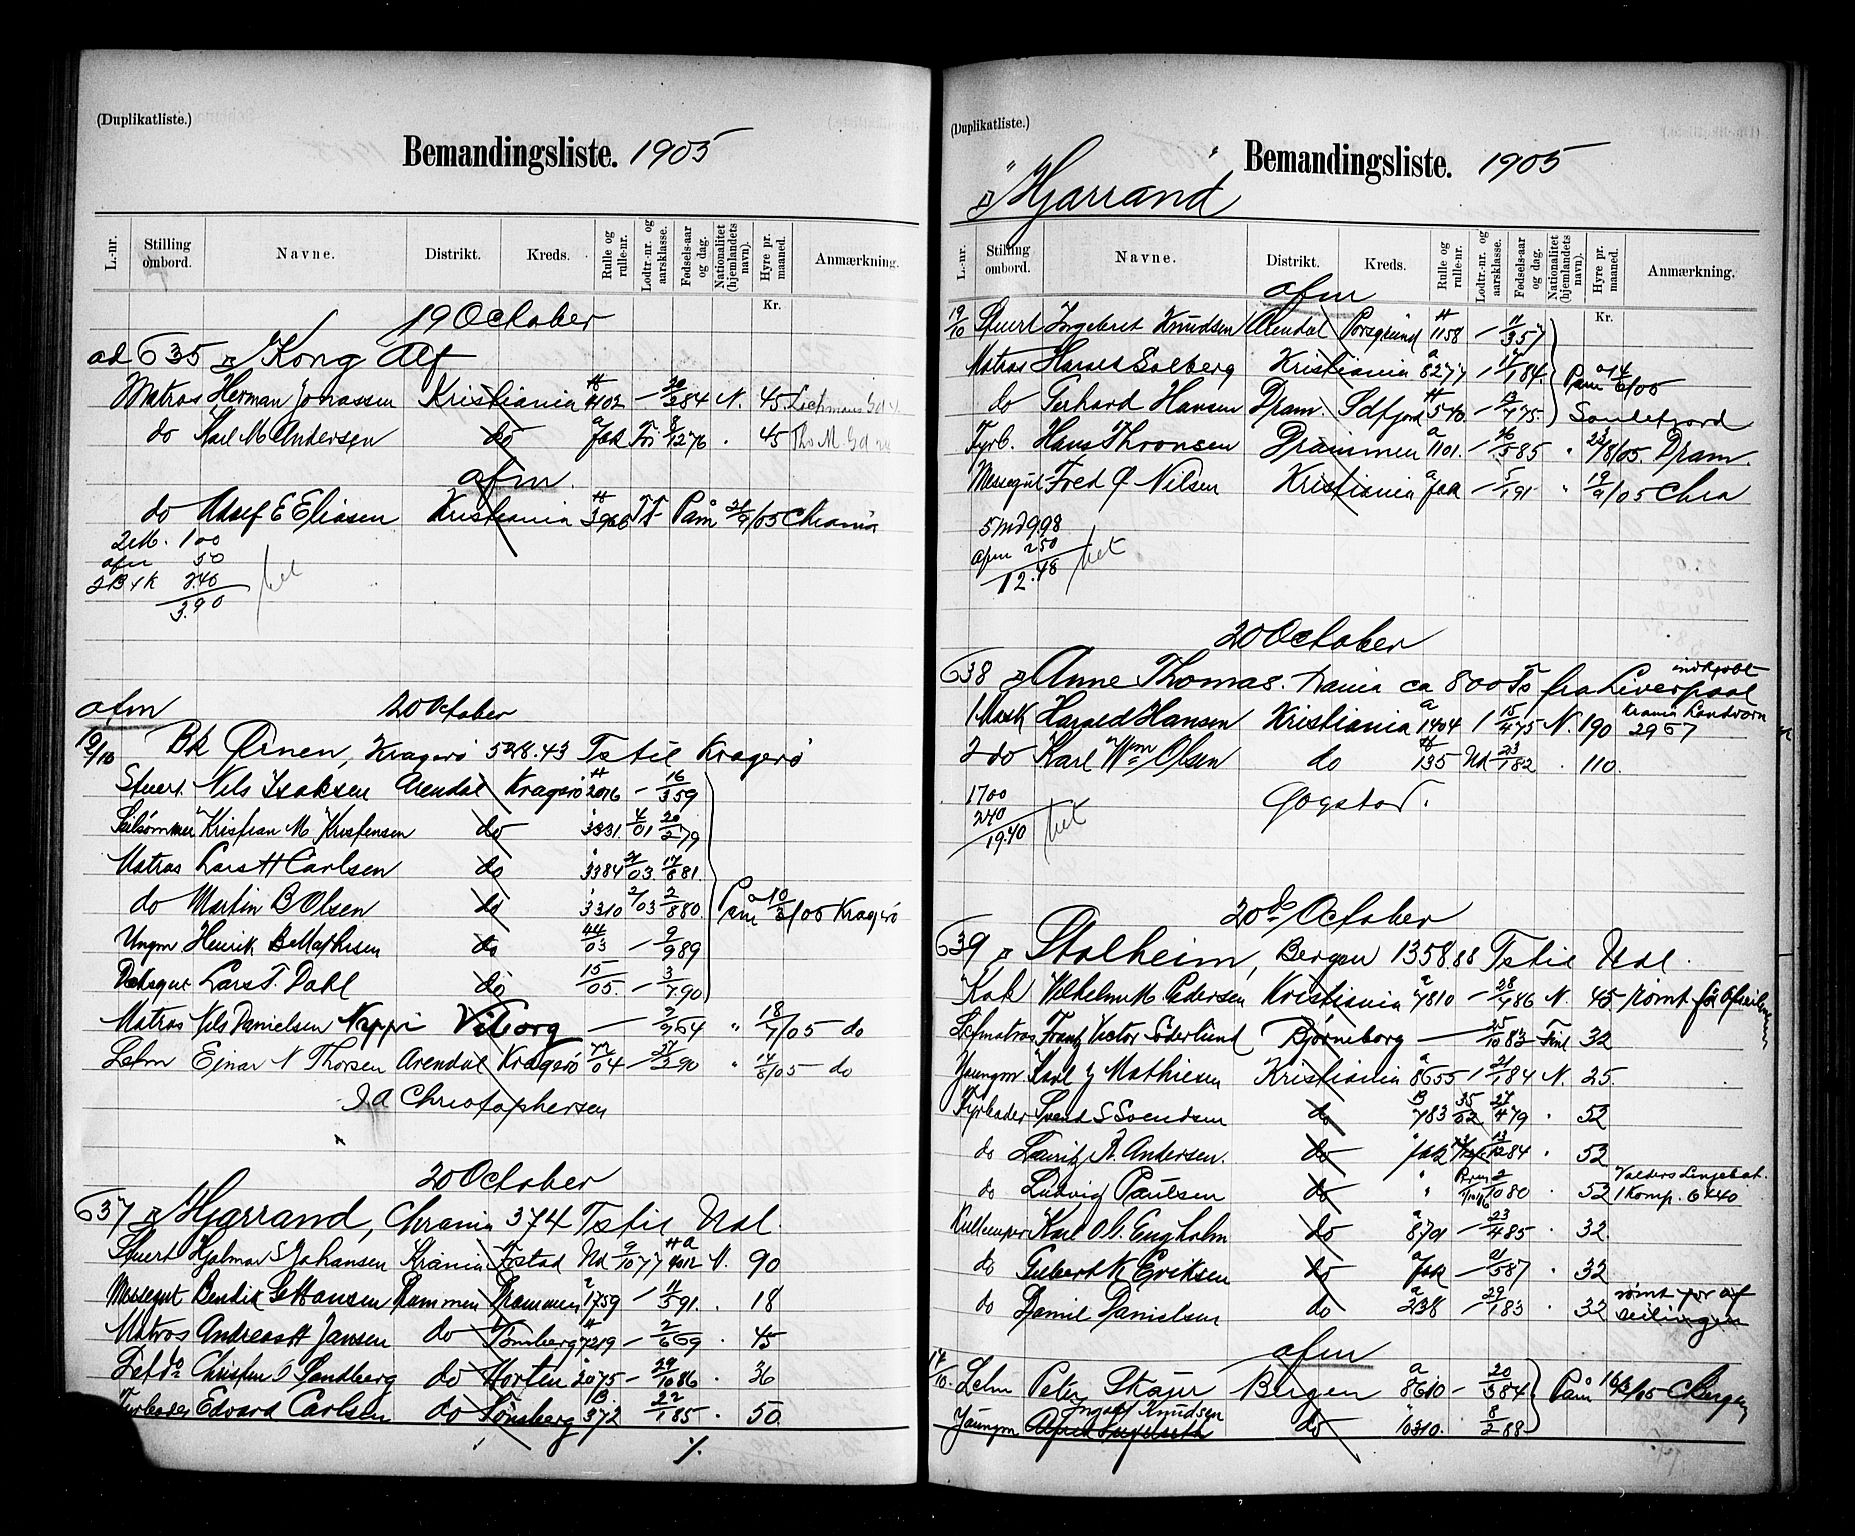 (Duplikatliste.)
Bemandingsliste. 1905
L.-nr. Stilling ombord. Navne. Distrikt. Kreds. Rulle og rulle-nr. Lodtr.-nr. og aarsklasse. Fødsels-aar og dag. Nationalitet (hjemlandets navn). Hyre pr. maaned. Anmærkning.
Kr.
19 October
ad 635 Kong Alf
Matros Herman Jonassen Kristiania N. 45
do Karl M Andersen do 45
afm.
do E Eliasen Kristiania Påm /05 Chrania
2M. 1 00
afm 50
2.40
3.90
afm 20 October
19/10 Bk Ørnen, Kragerø 528.43 Ts til Kragerø
Stuert Nils Isaksen Arendal Kragerø 2076 - 16/3 59
Seilsømmer Kristian M Kristensen do 3331 4/01 20/2 79
Matros Lars H Carlsen do 3384 /03 17/6 81
do Martin B Olsen do 3310 2/03 2/8 80 Påm 10/3/05 Kragerø
Ungm Henrik B Mathisen do 44/03 - 9/9 89
Dæksgut Lars T. Dahl do 15/05 - 3/7 90
Matros Nils Danielsen Nappi Viborg - 64 " 18/7/05 do
Letm Einar N Thorsen Arendal Kragerø /04 - 90 " 14/8/05 do
J A Christophersen
20 October
637 Hjarrand, Chrania 374 Ts til Udl.
Stuert Hjalmar S Johansen Krania N. 90
Messegut Bendix G Hansen Drammen Drammen 1759 - 11/5 91 18
Matros Andreas H Jansen do Tønsberg 7219 - 2/6 69 45
Let do Christen O Sandberg do Horten 2075 - 29/10 86 36
Fyrbøder Edvard Carlsen do Tønsberg 372 22/1 85 50
%
(Duplikatliste.)
Bemandingsliste. 1905
"Hjarrand"
L.-nr. Stilling ombord. Navne. Distrikt. Kreds. Rulle og rulle-nr. Lodtr.-nr. og aarsklasse. Fødsels-aar og dag. Nationalitet (hjemlandets navn). Hyre pr. maaned. Anmærkning.
afm Kr.
19/10 Stuert Ingebret Knudsen Arendal Porsgrund 1158 - 11/3 57
Matros Harald Solberg Kristiania 8277 1 /1 84 Påm 14/6/05
do Gerhard Hansen Dram Sdfjord 540 - /4 75 Sandefjord
Fyrb. Hans Thronsen Drammen 1101 - 16/5 85 " 23/8/05 Dram.
Messegut Fred O Nilsen Kristiania - 5/1 91 " 19/9/05 Chra
5 Md 9.98
afm 2 50
12.48
20 October
638 Anne Thomas. Krania ca 800 Ts fra Liverpool indkjøbt
1 Mask Harald Hansen Kristiania 1404 1 15/4 75 N. 190 2967
2 do Karl Wm Olsen do 135 Ud 23/1 82 110.
1700 Gogstad.
240
19.40
20de October
639 Stalheim, Bergen 1358.88 Ts til Udl.
Kok Vilhelm M. Pedersen Kristiania 7810 - 28/7 86 N. 45 rømt før Afseilingen
Letmatros Frantz Victor Söderlund Bjørneborg - 25/10 83 Finl 32
Youngm Karl J Mathiesen Kristiania 8655 1 21/1 84 N. 25.
Fyrbøder Svend S Svendsen do 783 35/02 27/4 79 52
do Lauritz A. Andersen. do 13/12 84 52
do Ludvig Paulsen do 2/10 80 52 1 Komp. 6 #40
Kullemper Karl O. G. Engholm do 8791 - 23/4 85 32.
do Gulbert K Eriksen do /5 87 32
do Damil Danielsen do 238 - 29/1 83 32 rømt før afseilingen
afm
17/10 Letm Peter Skaar Bergen 8610 - 20/3 84 Påm /05 Bergen
Youngm Ingolf Knudsen do 10310. 8/2 88